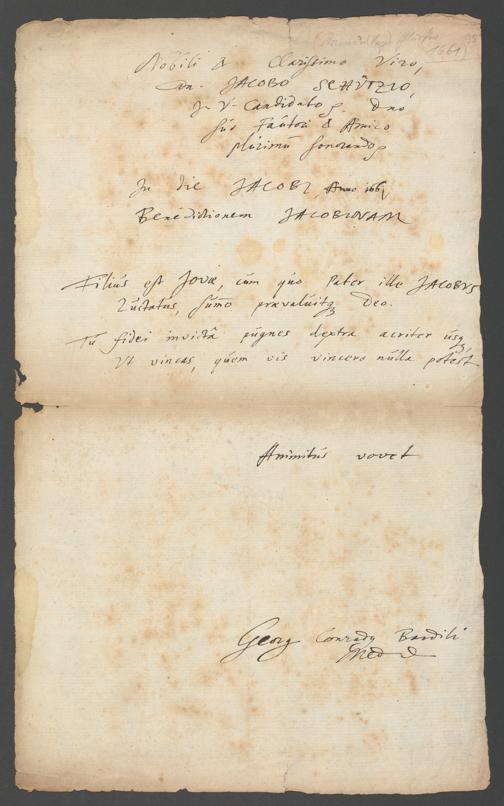 1661)
Nobili & Clarissimo Viro,
Dn. JACOBO SCHÜTZIO,
J. V. Candidato, Dno
suo Fautori & Amico
plurimũ honorando
In die JACOBI, Anno 1661
Benedictionem JACOBINAM
Filius est Jovæ, cum quo Pater ille JACOBUS
Luctatus, summo prævaluitq; Deo.
Tu fidei invictâ pugnes dextrâ acriter usq;
Ut vincas, quem vis vincere nulla potest
Animitus vovet
Georg Conrady Bardili
Med D